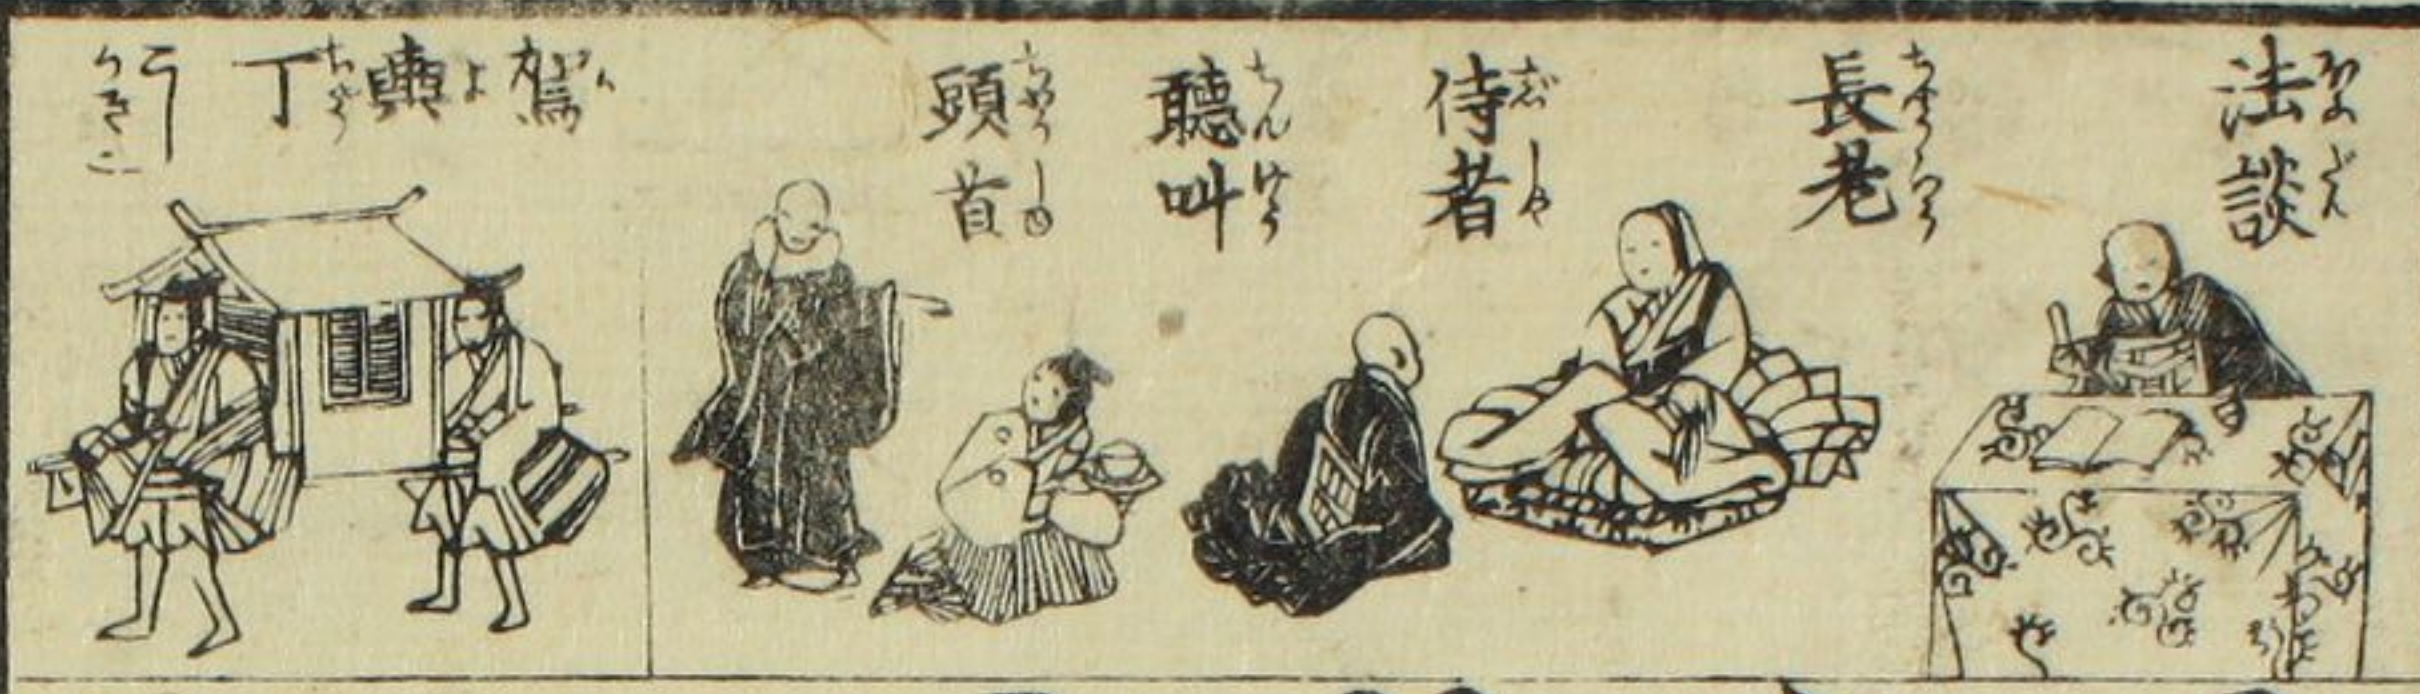 法談
だん
長老
ちやうらう
侍者
じしや
聽叫
ちんけう
頭首
ちやうしゆ
駕輿丁
かよちやう